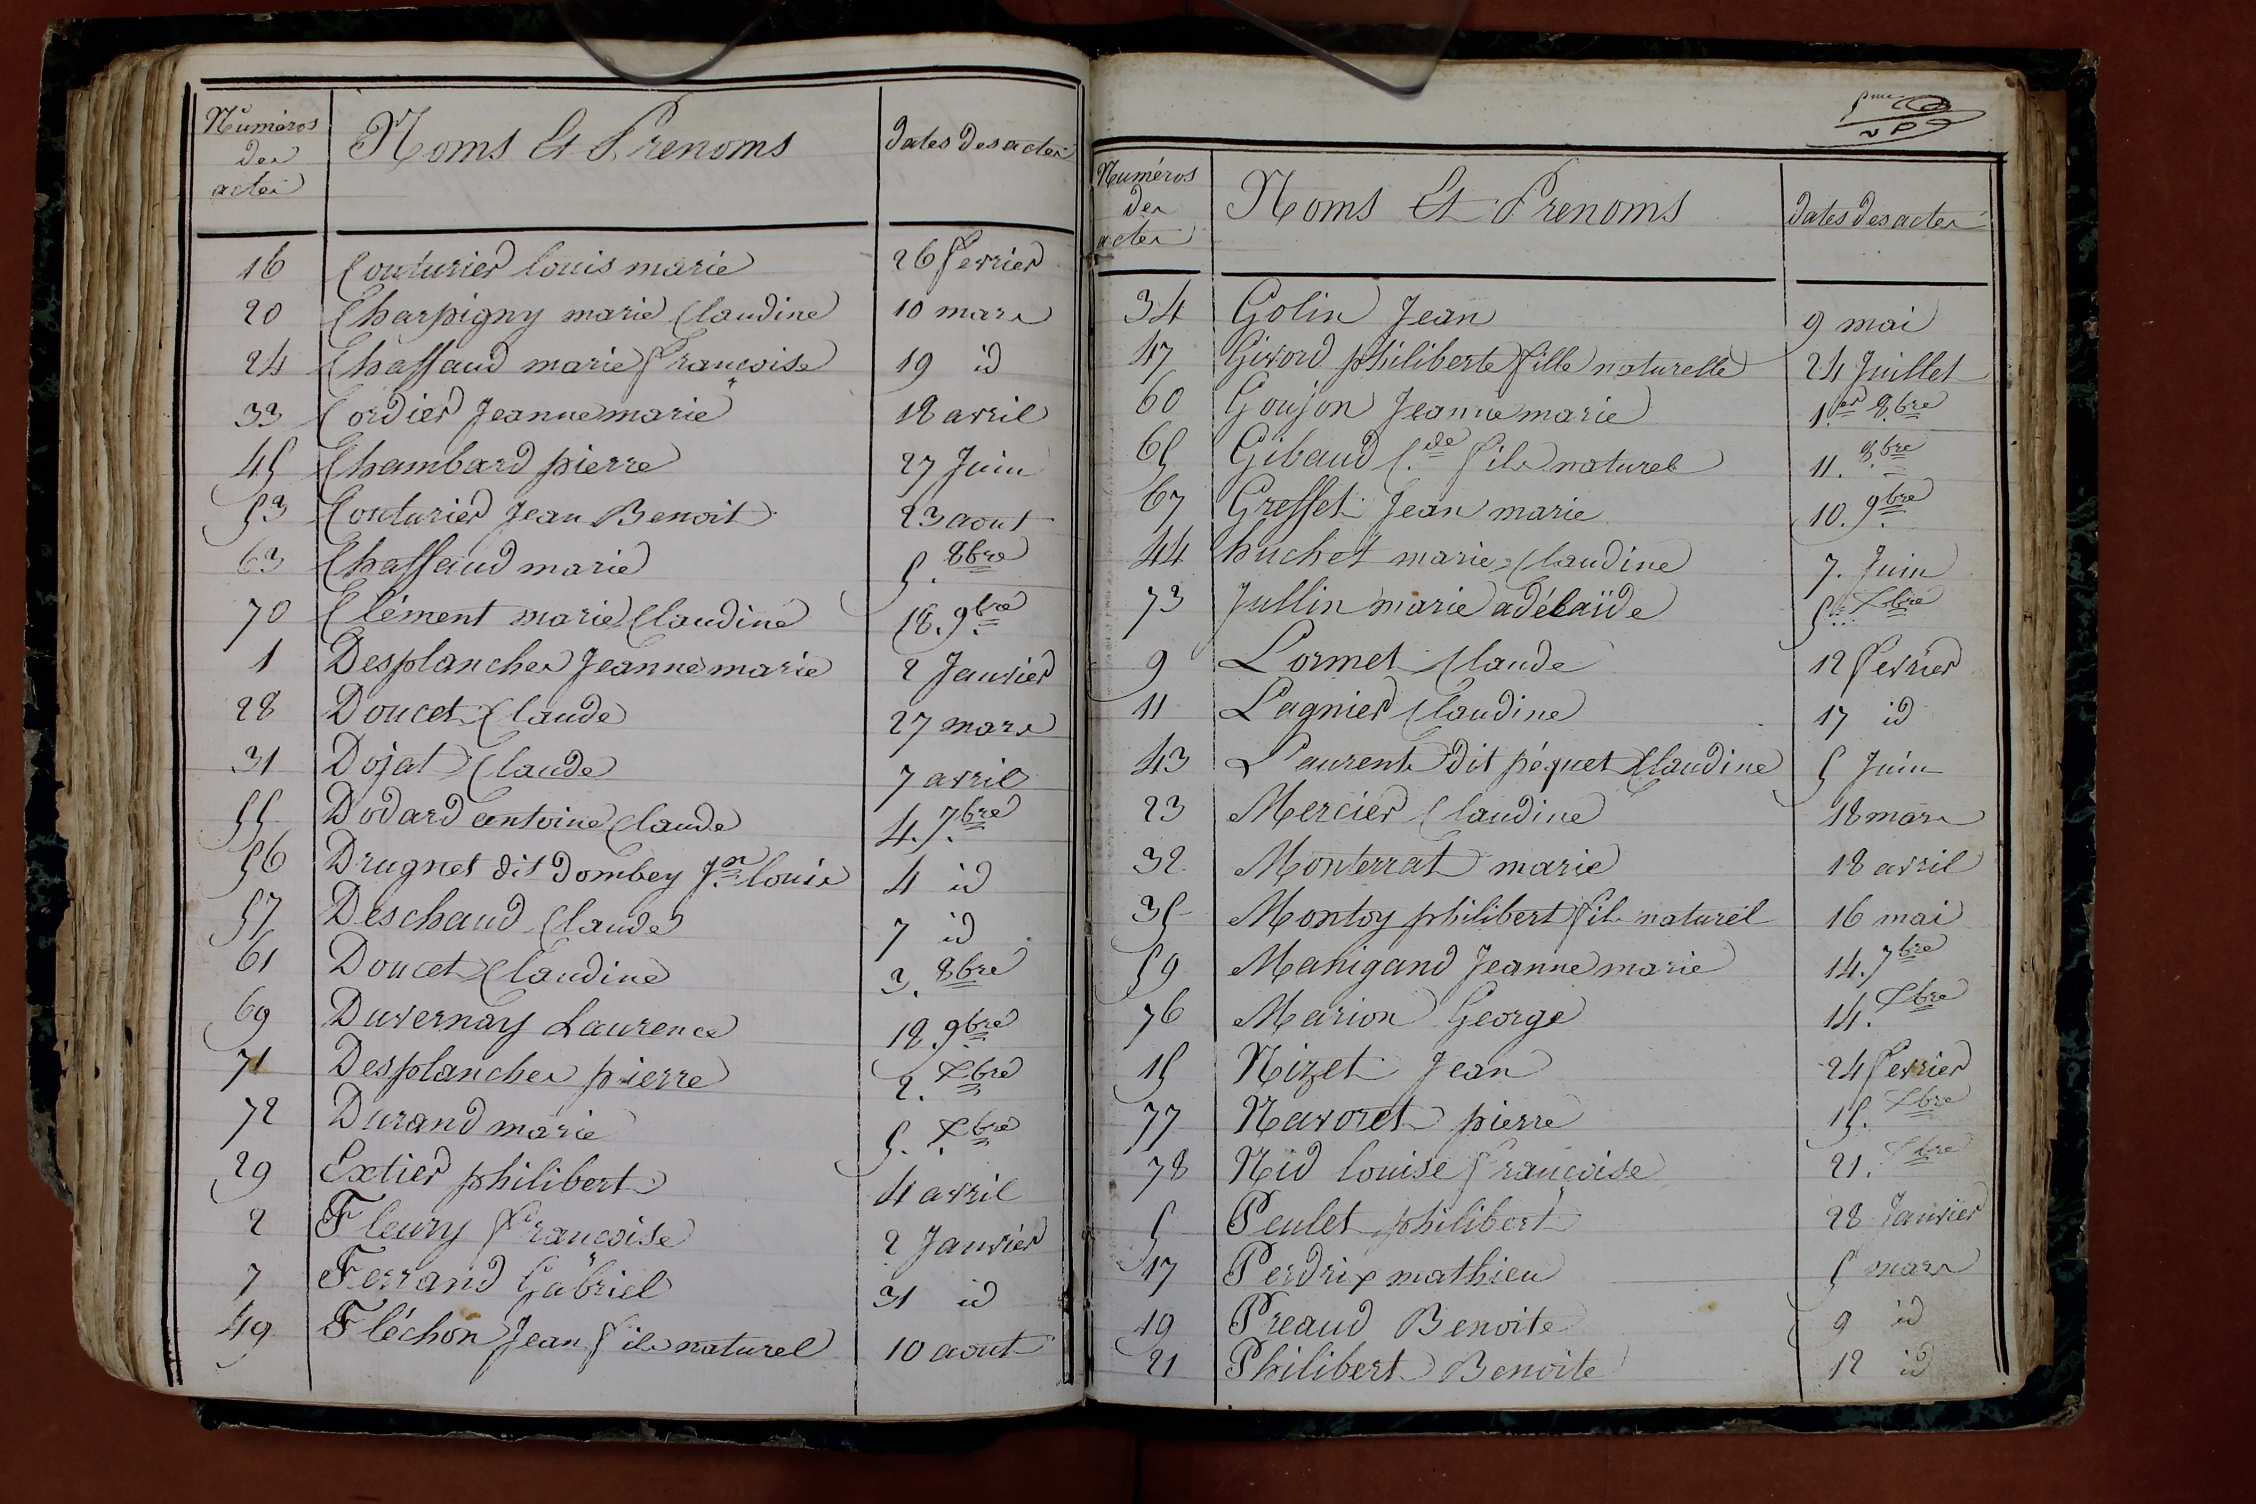 Numéros
des
actes
Noms Et Prenoms
dates des actes
16 Couturier louis marie 26 fevrier
20 Charpigny marie Claudine 10 mars
24 Chaffaud marie françoise 19 id
33 Cordier Jeanne marie 12 avril
45 Chambard pierre 27 Juin
53 Couturier Jean Benoit 23 aout
63 Chaffaud marie 5. 8bre
70 Clément marie Claudine 18. 9bre
1 Desplanches Jeanne marie 2 Janvier
28 Doucet Claude 27 mars
31 Dojat Claude 7 avril
55 Dodard antoine Claude 4. 7bre
56 Drugnet dit Dombey Jn louis 4 id
57 Deschaud Claude 7 id
61 Doucet Claudine 3. 8bre
69 Duvernay Laurence 12. 9bre
71 Desplanches pierre 2. Xbre
72 Durand marie 5. Xbre
29 Extier philibert 4 avril
2 Fleury françoise 2 Janvier
7 Ferrand Gabriel 31 id
49 Fléchon Jean fils naturel 10 aout
Numéros
des
actes
Noms Et Prenoms
dates des actes
34 Golin Jean 9 mai
47 Givord philiberte fille naturelle 24 Juillet
60 Goujon Jeanne marie 1er 8bre
65 Gibaud C.de fils naturel 11. 8bre
67 Greffet Jean marie 10. 9bre
44 huchet marie Claudine 7. Juin
73 Jullin marie adélaïde 5. Xbre
9 Lormet Claude 12 fevrier
11 Lagnier Claudine 17 id
43 Laurent dit péquet Claudine 5 Juin
23 Mercier Claudine 18 mars
32 Monterrat marie 12 avril
35 Montoy philibert fils naturel 16 mai
59 Manigand Jeanne marie 14. 7bre
76 Marion George 14. Xbre
15 Nizet Jean 24 fevrier
77 Navoret pierre 15. Xbre
78 Nid louise françoise 21. Xbre
5 Peulet philibert 28 Janvier
17 Perdrix mathieu 5 mars
19 Preaud Benoite 9 id
21 Philibert Benoite 12 id